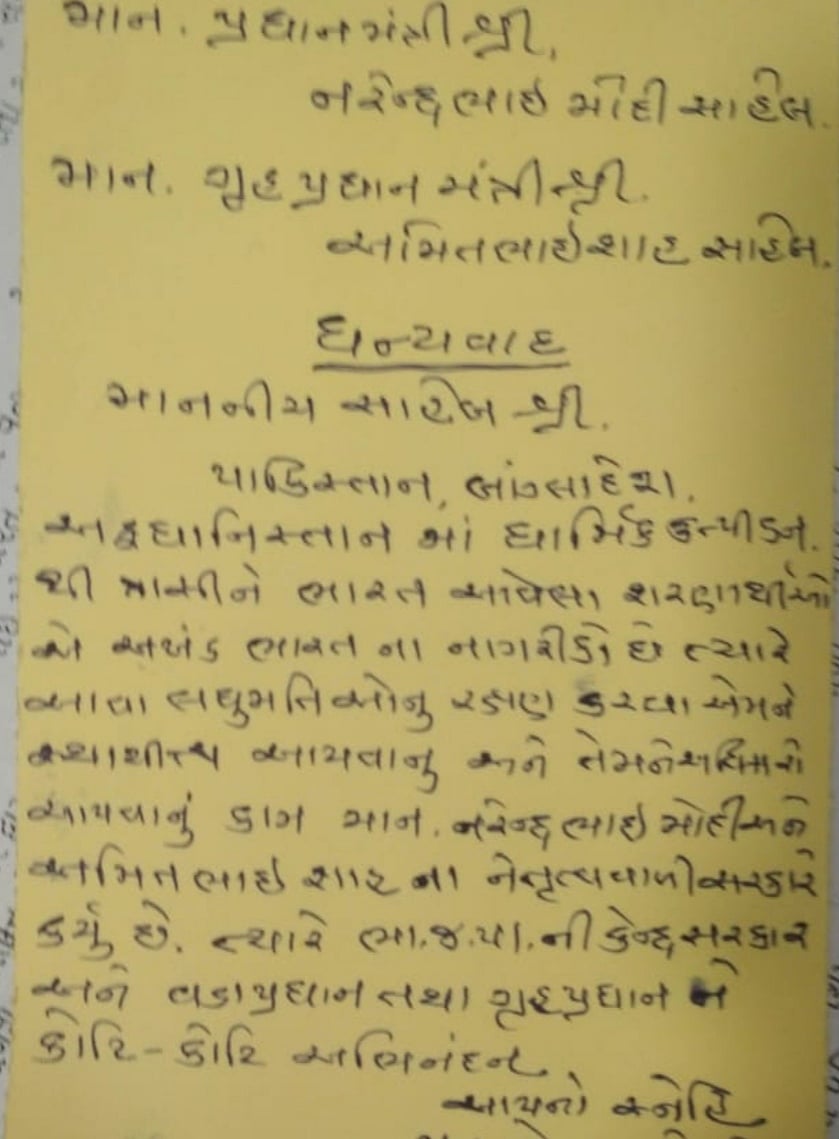 માન. પ્રધાનમંત્રી શ્રી,
નરેન્દ્રભાઇ મોદી સાહેબ.
માન. ગૃહપ્રધાન મંત્રી શ્રી.
અમિતભાઇ શાહ સાહેબ.
ધન્યવાદ
માનનીય સાહેબ શ્રી.
પાકિસ્તાન, બાંગ્લાદેશ.
અફઘાનિસ્તાન માં ધાર્મિક ઉત્પીડન.
થી ત્રાસીને ભારત આવેલા શરણાર્થીઓ
એ અખંડ ભારત ના નાગરીકો છે ત્યારે
આવા લઘુમતિઓનુ રક્ષણ કરવા એમને
આપવાનુ અને તેમને
આપવાનું કામ માન. નરેન્દ્રભાઇ મોદી અને
અમિતભાઇ શાહ ના નેતૃત્વવાળી સરકારે
કર્યું છે. ત્યારે ભા.જ.પા.ની કેન્દ્ર સરકાર
અને વડાપ્રધાન તથા ગૃહપ્રધાન ને
કોટિ-કોટિ અભિનંદન.
આપનો સ્નેહિ